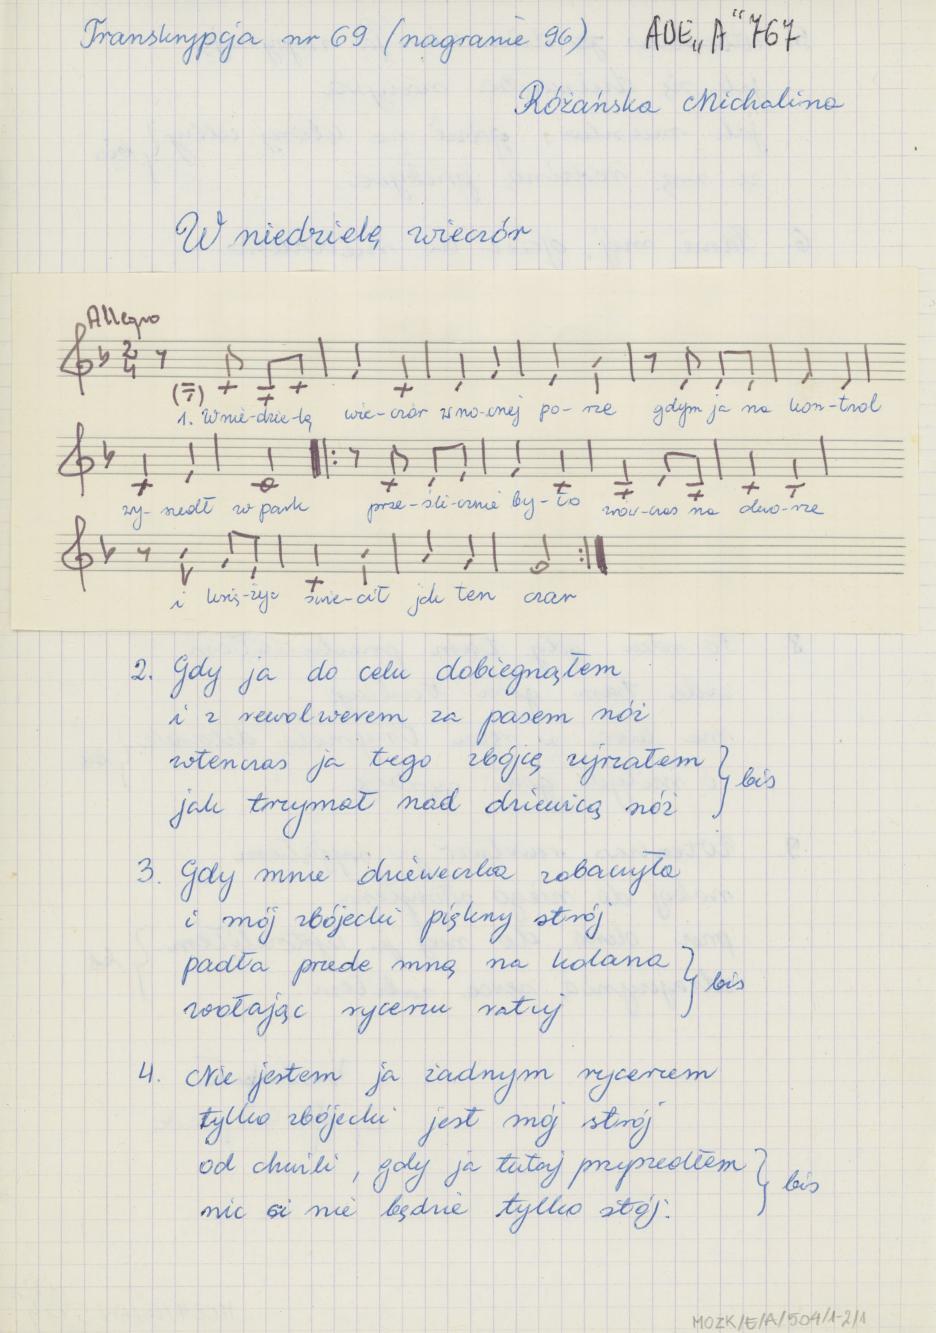 Transkrypcja nr 69 (nagranie 96) ADE„A“ 767
Różańska Michalina
W niedzielę wieczór
Allegro
1. W nie-dzie-lę wie-czór w no-cnej po-rze gdym ja na kon-trol
wy-szedł w park prze-śli-cznie by-ło wów-czas na dwo-rze
i księ-życ świe-cił jak ten czar
2. Gdy ja do celu dobiegnąłem
i z rewolwerem za pasem nóż
wtenczas ja tego zbójcę ujrzałem
jak trzymał nad dziewicą nóż } bis
3. Gdy mnie dzieweczka zobaczyła
i mój zbójecki piękny strój
padła przede mną na kolana
wołając ryceru ratuj } bis
4. Nie jestem ja żadnym rycerzem
tylko zbójecki jest mój strój
od chwili, gdy ja tutaj przyszedłem
nic ci nie będzie tylko stój. } bis
MOZK/E/A/504/1-2/1